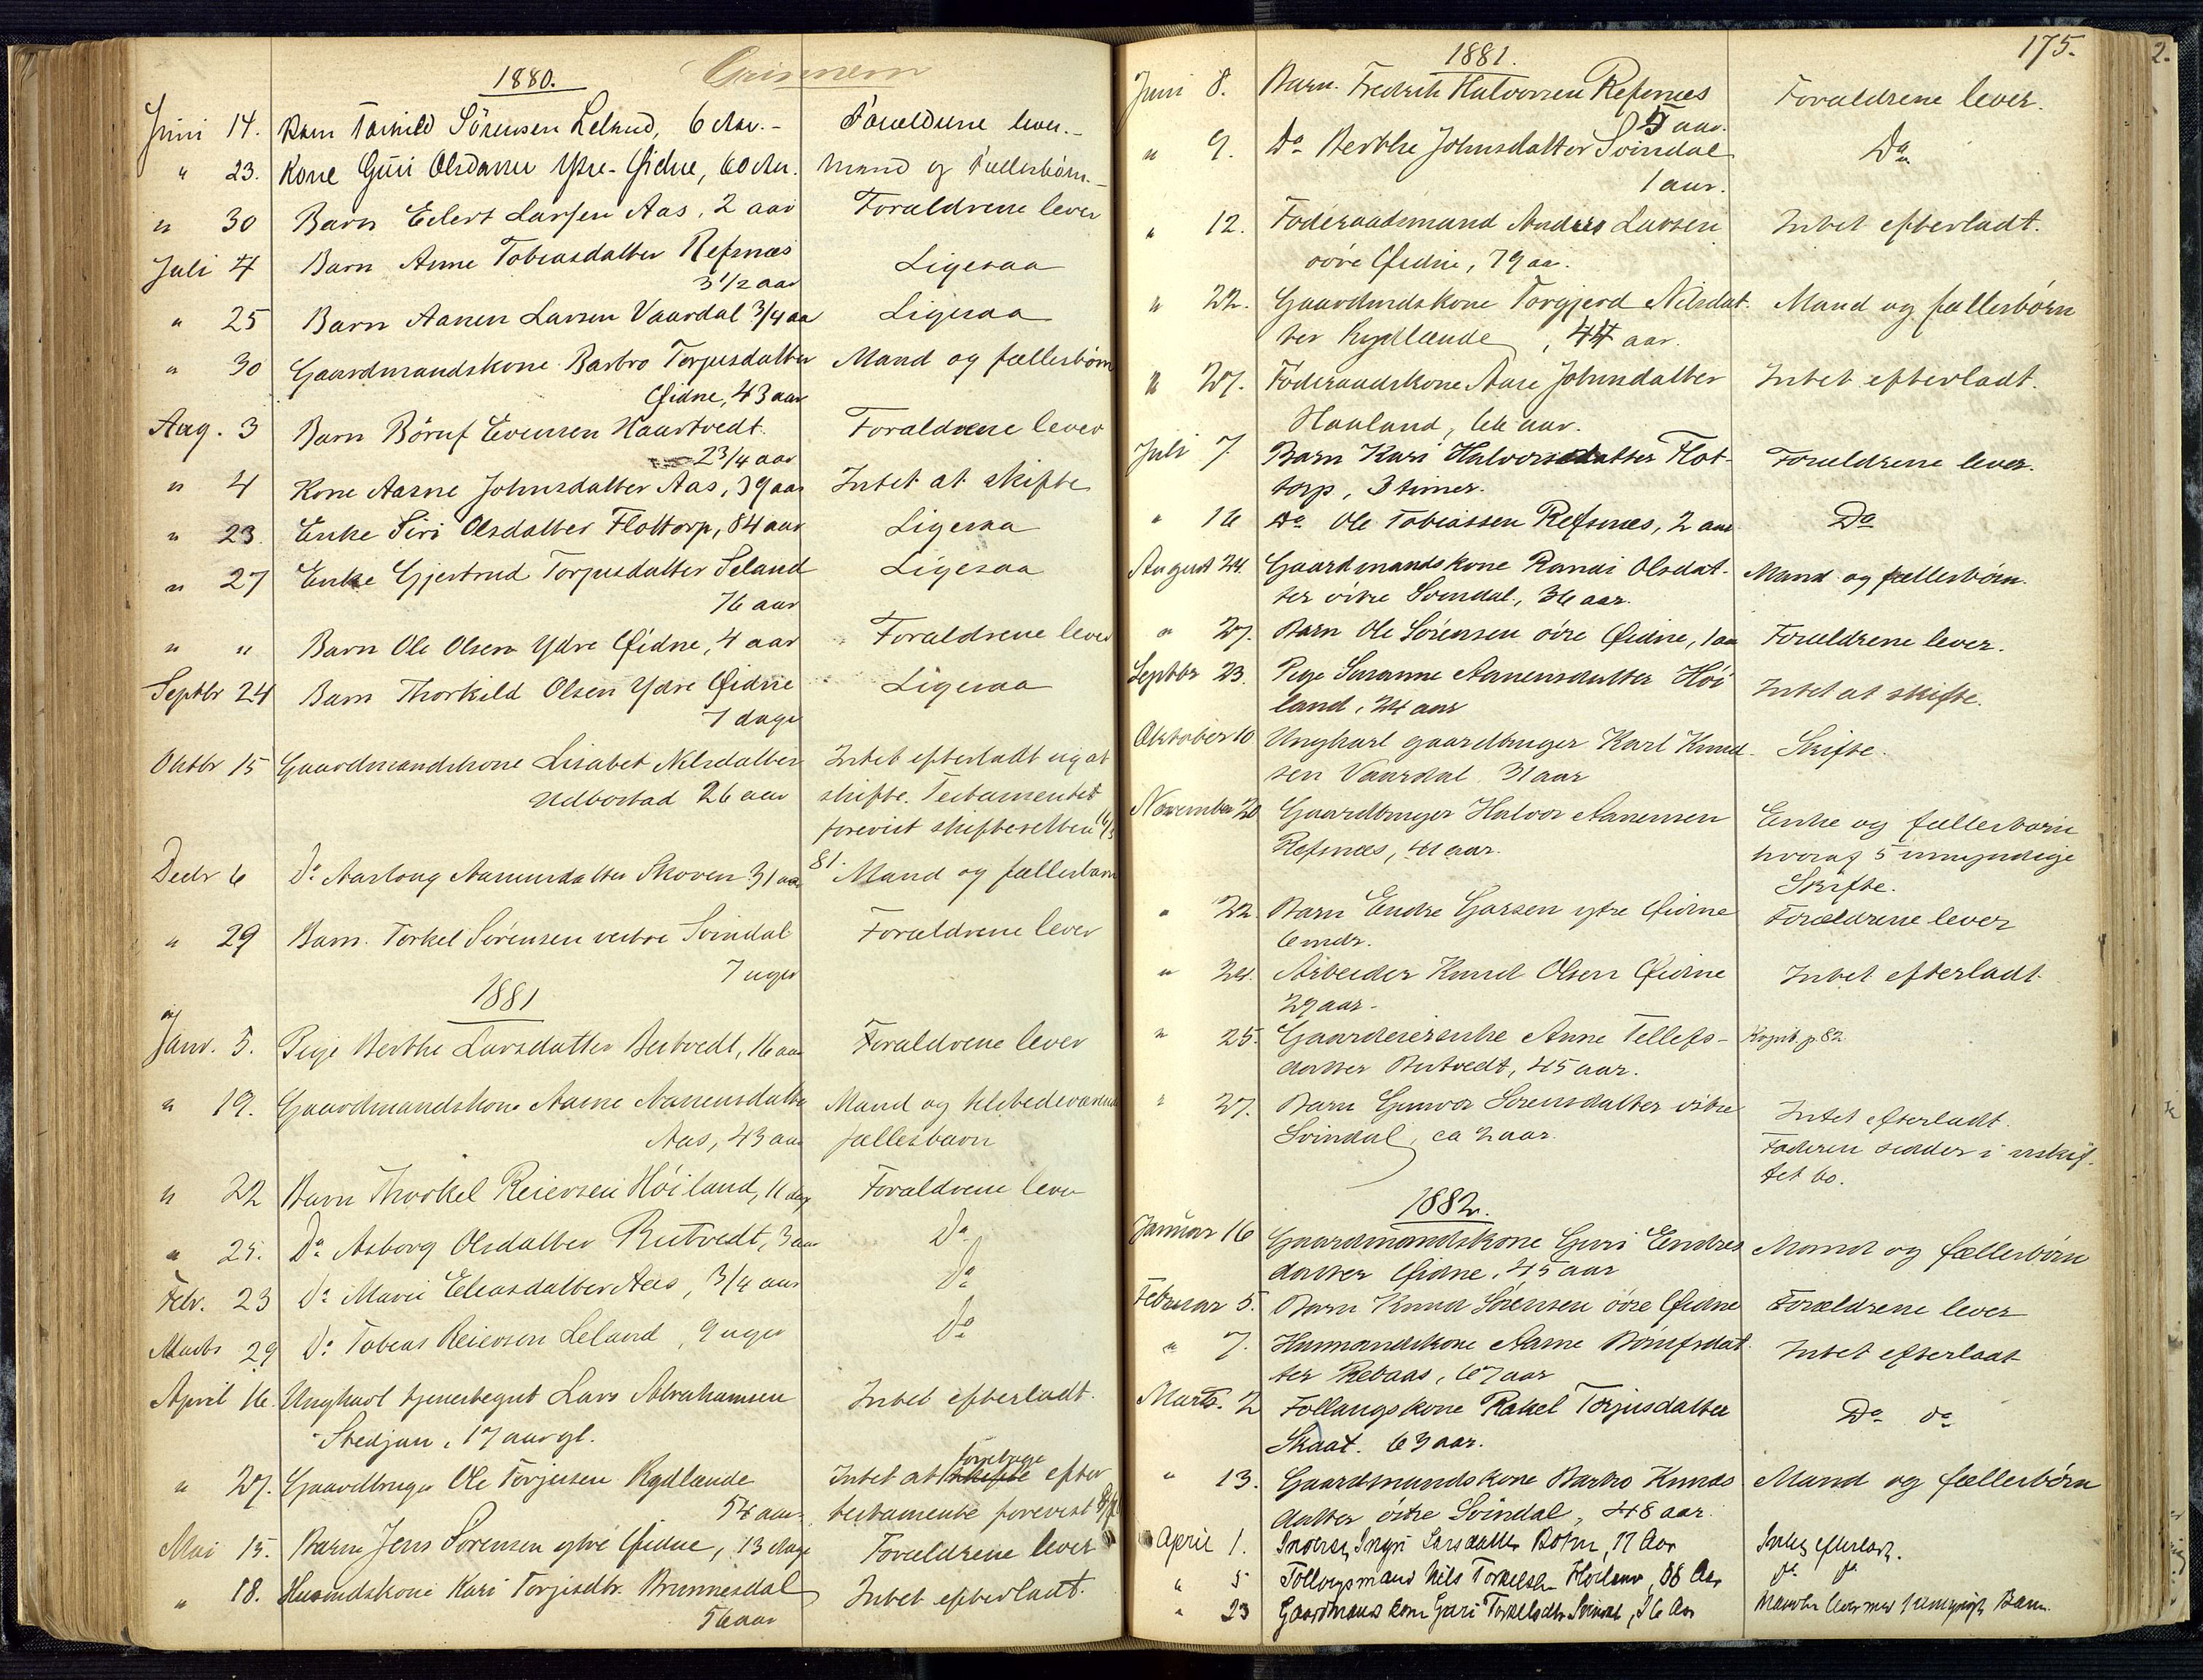 1880.
Grinnem
Juni 14. Barn Torkild Sörensen Leland, 6 Aar. - Foraeldrene lever. -
" 23. Kone Guri Olsdatter Ytre-Øidne, 60 Aar. Mand og Fællesbørn. -
" 30 Barn Eilert Larsen Aas, 2 aar Forældrene lever
Juli 4 Barn Anne Tobiasdatter Refsnæs Ligesaa
3 1/2 aar
" 25 Barn Aanen Larsen Vaardal 3/4 aa Ligesaa
" 30 Gaardmandskone Barbro Torjusdatter Mand og fællesbørn
Øidne, 43 aar
Aug. 3 Barn Börüf Evensen Haartvedt. Forældrene lever
2 3/4 aar
" 4 Kone Aasne Johnsdatter Aas, 39 aar Intet at skifte
" 23. Enke Siri Olsdatter Flottorp, 84 aar Ligesaa
" 27 Enke Gjertrud Torjusdatter Seland Ligesaa
76 aar
" " Barn Ole Olsen Ydre Øidne, 4 aar Forældrene lever
Septbr 24 Barn Thorkild Olsen Ydre Øidne Ligesaa
7 dage
Oktbr 15 Gaardmandskone Lisabet Nilsdatter Intet efterladt eg at
Udbostad 26 aar skifte. Testamentet
forevist skifteretten 16/3
81.
Decbr 6 Do Aaslaug Aanensdatter Skoven 31 aar Mand og fællesbarn
" 29 Barn Torkel Sörensen vestre Svindal Forældrene lever
7 uger
1881
Janr. 5. Pige Berthe Larsdatter Butvedt, 16 aar Forældrene lever
" 19. Gaardmandskone Aasne Aanensdatter Mand og
Aas, 43 aar fællesbarn
" 22 Barn Thorkel Reiersen Höiland, 11 dag Forældrene lever
" 25. Do Asborg Olsdatter Butvedt, 3 aar Do
Febr. 23 Do Marie Eliasdatter Aas, 3/4 aar Do
Marts 29 Do Tobias Reiersen Leland, 9 uger Do
April 16. Ungkarl tjenestegut Lars Abrahamsen Intet efterladt.
Stedjan, 17 aar gl.
" 27. Gaardbruger Ole Torjusen Rydlande Intet at foretage efter
54 aar. testamente forevist
Mai 15. Barn Jens Sörensen ytre Øidne, 13 dage Forældrene lever
" 18. Husmdskone Kari Torjusdtr. Brunnesdal Intet efterladt.
56 aar
175.
1881.
Juni 8. Barn. Fredrik Halvorsen Refsnæs Forældrene lever.
5 aar.
" 9. Do Berthe Johnsdatter Svindal Do
1 aar.
" 12. Föderaadsmand Anders Larsen Intet efterladt.
övre Øidne, 79 aa.
" 22. Gaardmdskone Torgjerd Nilsdat- Mand og fællesbörn
ter Rydlande, 44 aar.
" 27. Föderaadskone Aase Johnsdatter Intet efterladt.
Haaland, 66 aar.
Juli 7. Barn Kari Halvorsdatter Flot- Forældrene lever.
torp, 3 timer.
" 16 Do Ole Tobiassen Refsnæs, 2 aar Do
August 24. Gaardmandskone Randi Olsdat- Mand og fællesbörn.
ter östre Svindal, 36 aar.
" 27. Barn Ole Sörensen övre Øidne, 1 aa Forældrene lever.
Septbr 23. Pige Susanne Aanensdatter Höi- Intet at skifte.
land, 24 aar
Oktober 10 Ungkarl gaardbruger Karl Knud- Skifte.
sen Vaardal 31 aar
November 20 Gaardbruger Halvor Aanensen Enke og fællesbörn
Refsnæs, 41 aar. hvoraf 5 umyndige
Skifte.
" 22 Barn Endre Larsen ytre Øidne Forældrene lever
6 mdr.
" 24. Arbeider Knud Olsen Øidne Intet efterladt.
29 aar.
" 25. Gaardeierenke Anne Tellefs-
datter Butvedt, 45 aar.
" 27. Barn Gunvor Sörensdatter östre Intet efterladt.
Svindal, ca 2 aar. Faderen sidder i uskif-
tet bo.
1882.
Januar 16 Gaardmandskone Guri Endres Mand og fællesbörn
datter Øidne, 45 aar
Februar 5. Barn Knud Sörensen övre Øidne Forældrene lever
" 7. Husmandskone Aasne Börufsdat- Intet efterladt
ter Rebaas, 67 aar
Marts. 2 Follaugskone Rakel Torjusdatter Do do
Skaat. 63 aar.
" 13. Gaardmandskone Barbro Knuds Mand og fællesbörn
datter östre Svindal, 48 aar.
April 1. Inderst Ingri Larsdatter Botne, 77 Aar Intet efterladt.
" 5 Follaugsmand Nils Torkelsen Höiland, 88 Aar do do
" 23 Gaardmands kone Guri Torkelsdtr Svindal, 26 Aar Manden lever med 1 umyndigt Barn.